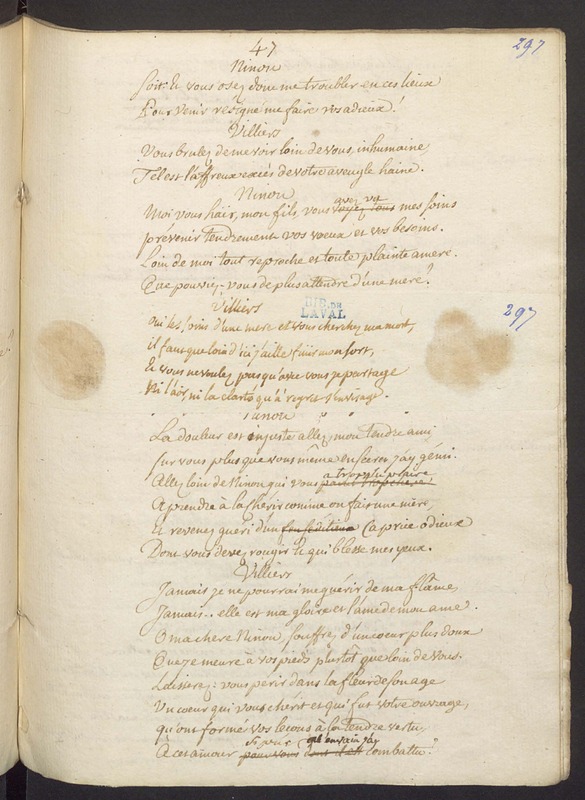 47
297
Ninon
Soit. Et vous osez donc me troubler en ces lieux
Pour venir résigné me faire vos adieux!
Villiers
Vous brulez de me voir loin de vous, inhumaine,
Tel est l'affreux excès de votre aveugle haine.
Ninon
avez vu
Moi vous haïr, mon fils, vous voyez tous mes soins
prévenir tendrement vos voeux et vos besoins.
Loin de moi tout reproche et toute plainte amere.
Que pouviez-vous de plus attendre d'une mere?
BIB. DE
LAVAL
Villiers
Oui les soins d'une mere et vous cherchez ma mort,
297
il faut que loin d'ici j'aille finir mon sort,
Et vous ne voulez pas qu'avec vous je partage
Ni l'air, ni la clarté qu'à regret j'envisage.
Ninon
La douleur est injuste allez, mon tendre ami,
sur vous plus que vous même en secret j'ay gémi.
a trop su plaire
Allez loin de Ninon qui vous
Aprendre à la chérir comme on fait une mère,
Et revenez gueri d'un caprice odieux
Dont vous devez rougir et qui blesse mes yeux.
Villiers
Jamais je ne pourrai me guérir de ma flâme,
Jamais.. elle est ma gloire et l'âme de mon ame.
O ma chere Ninon, souffrez d'un coeur plus doux
Que je meure à vos pieds plustôt que loin de vous.
Laisserez-vous périr dans la fleur de son age
Un coeur qui vous chérit et qui fut votre ouvrage,
qu'ont formé vos leçons à la tendre vertu,
si pur qu'en vain j'ay
A cet amour pour vous dont il est combattu?